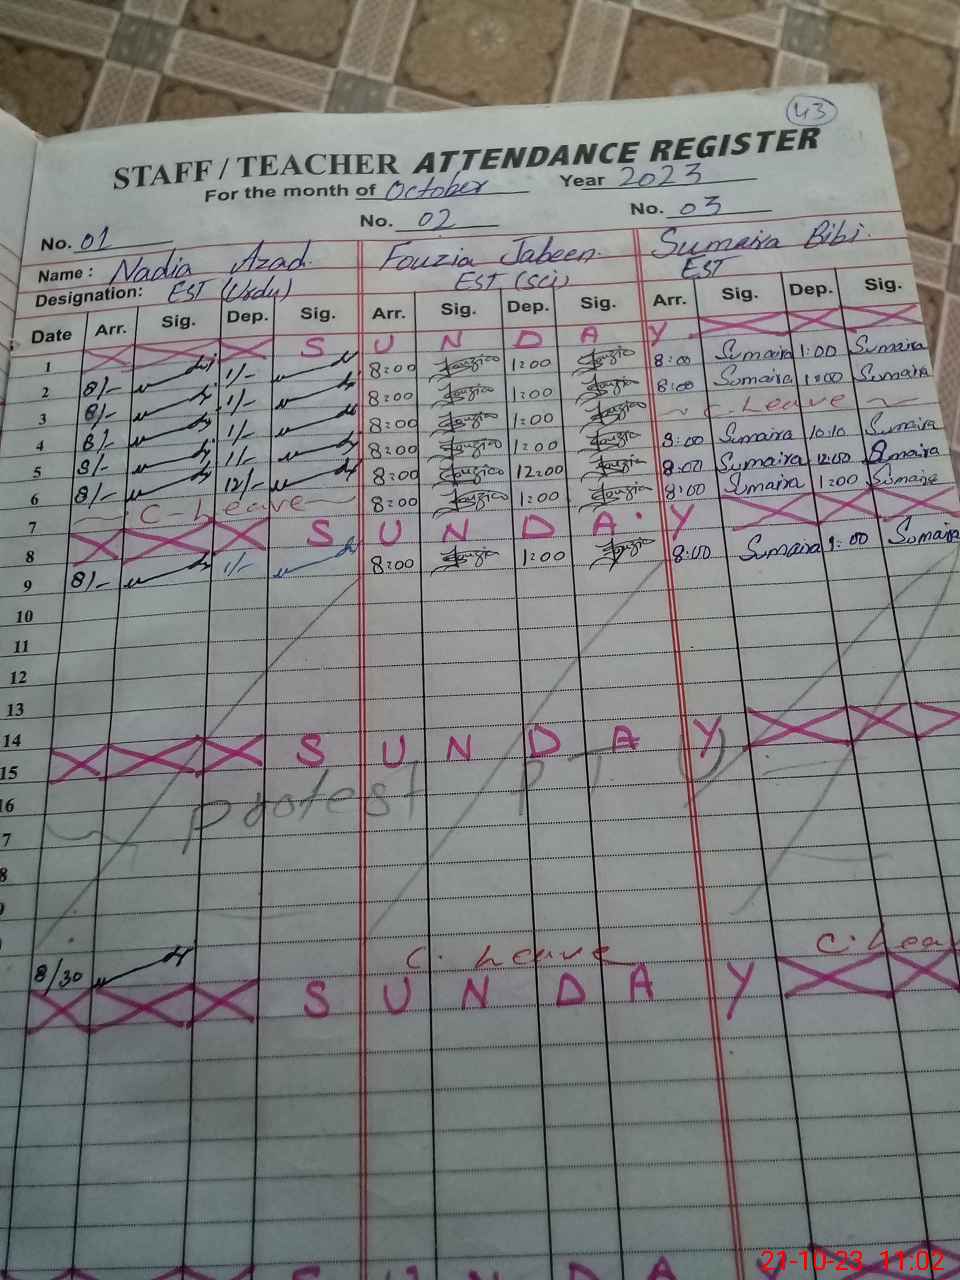 43
STAFF / TEACHER ATTENDANCE REGISTER
For the month of October Year 2023
No. 01 No. 02 No. 03
Name : Nadia Azad. Fouzia Jabeen. Sumaira Bibi.
Designation: EST (Urdu) EST (Sci) EST
Date Arr. Sig. Dep. Sig. Arr. Sig. Dep. Sig. Arr. Sig. Dep. Sig.
1 S U N D A Y
2 8/- 1/- 8:00 Fouzia 1:00 Fouzia 8:00 Sumaira 1:00 Sumaira
3 8/- 1/- 8:00 Fouzia 1:00 Fouzia 8:00 Sumaira 1:00 Sumaira
4 8/- 1/- 8:00 Fouzia 1:00 Fouzia C. Leave
5 8/- 1/- 8:00 Fouzia 1:00 Fouzia 8:00 Sumaira 10:10 Sumaira
6 8/- 12/- 8:00 Fouzia 12:00 Fouzia 8:00 Sumaira 12:00 Sumaira
7 C. Leave 8:00 Fouzia 1:00 Fouzia 8:00 Sumaira 1:00 Sumaira
8 S U N D A Y
9 8/- 1/- 8:00 Fouzia 1:00 Fouzia 8:00 Sumaira 1:00 Sumaira
10
11
12
13
14
15 S U N D A Y
16 protest
7
8
9
8/30 C. Leave C. Lea
S U N D A Y
S U N D A
27-10-23 11:02